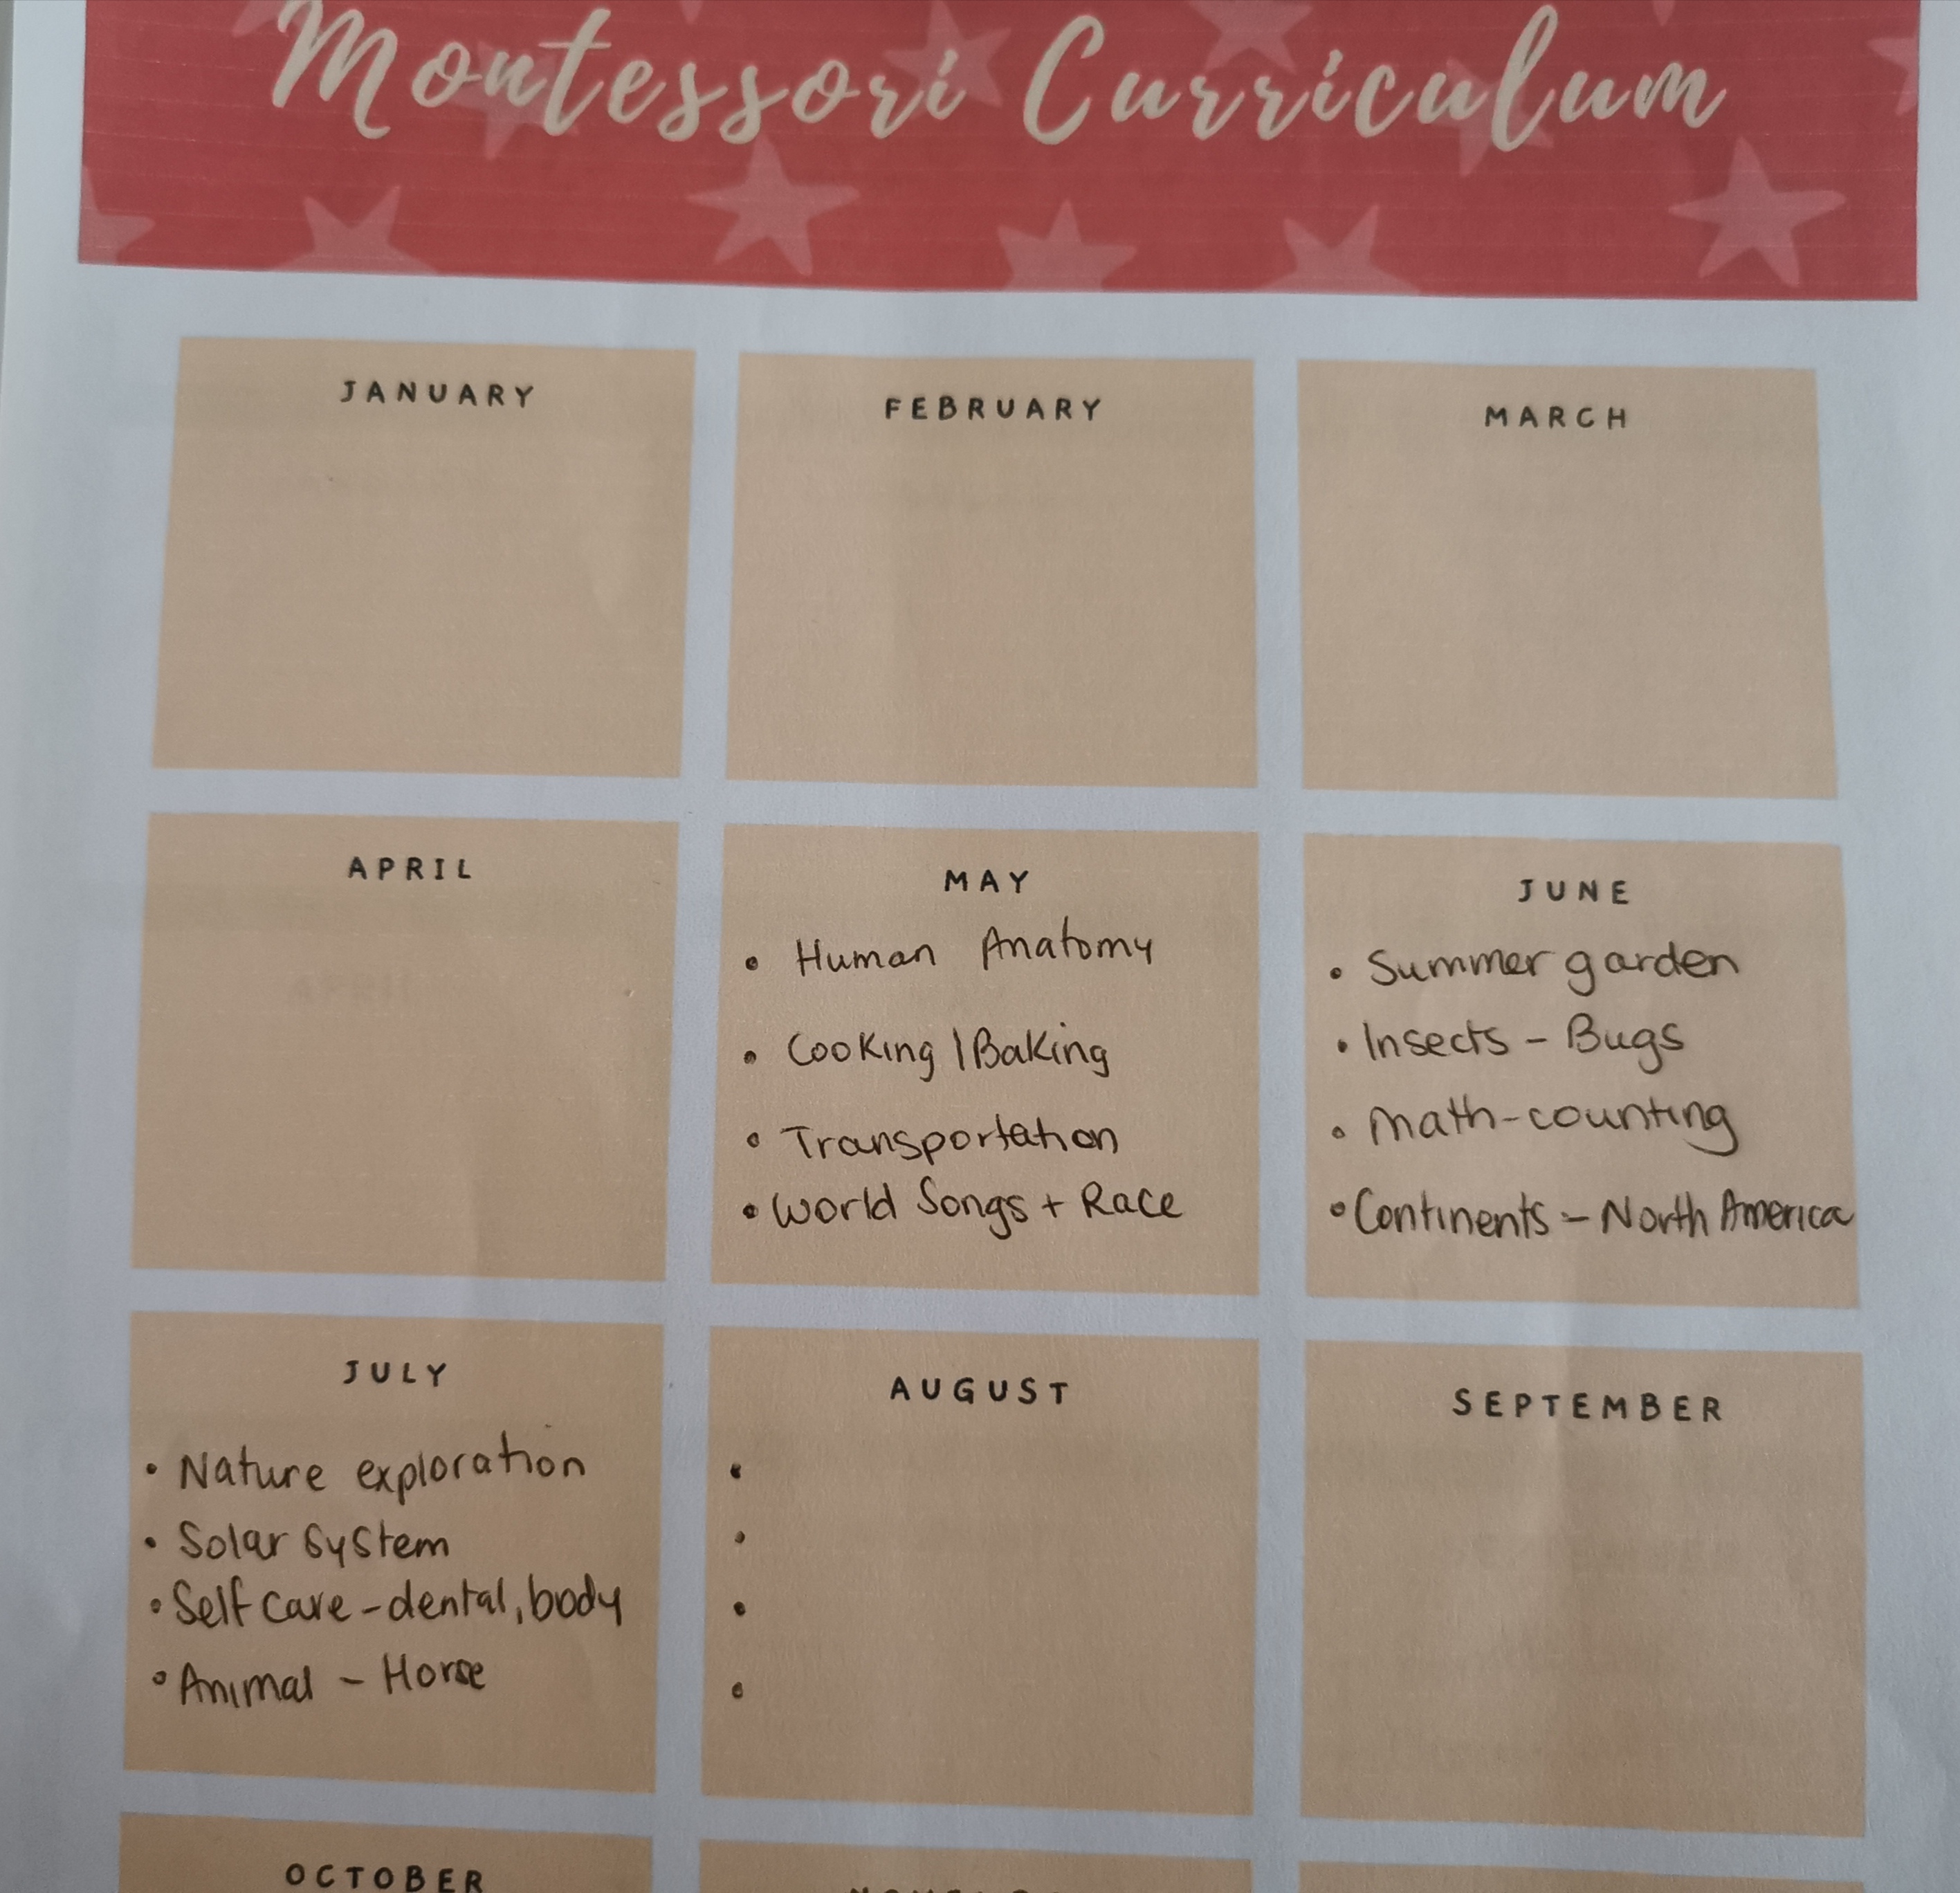 Montessori Curriculum
JANUARY
FEBRUARY
MARCH
APRIL
MAY
• Human Anatomy
• Cooking | Baking
• Transportation
• World Songs + Race
JUNE
• Summer garden
• Insects - Bugs
• Math-counting
• Continents - North America
JULY
• Nature exploration
• Solar System
• Self care - dental, body
• Animal - Horse
AUGUST
•
•
•
•
SEPTEMBER
OCTOBER